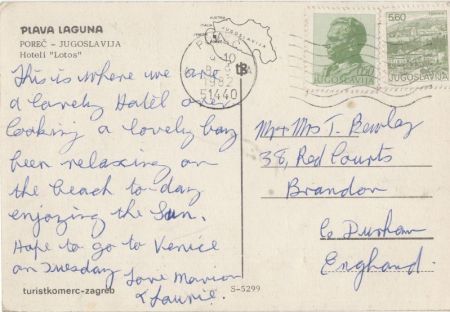 PLAVA LAGUNA
POREČ – JUGOSLAVIJA
Hoteli "Lotos"
This is where we are
a lovely Hotel over
looking a lovely bay
been relaxing on
the beach to-day
enjoying the Sun.
Hope to go to Venice
on Tuesday
Love Marion
& Laurie.
turistkomerc-zagreb
S-5299
51440
JUGOSLAVIJA
5.60
JUGOSLAVIJA
Mr + Mrs T. Bewley
38, Red Courts
Brandon
Co Durham
England.